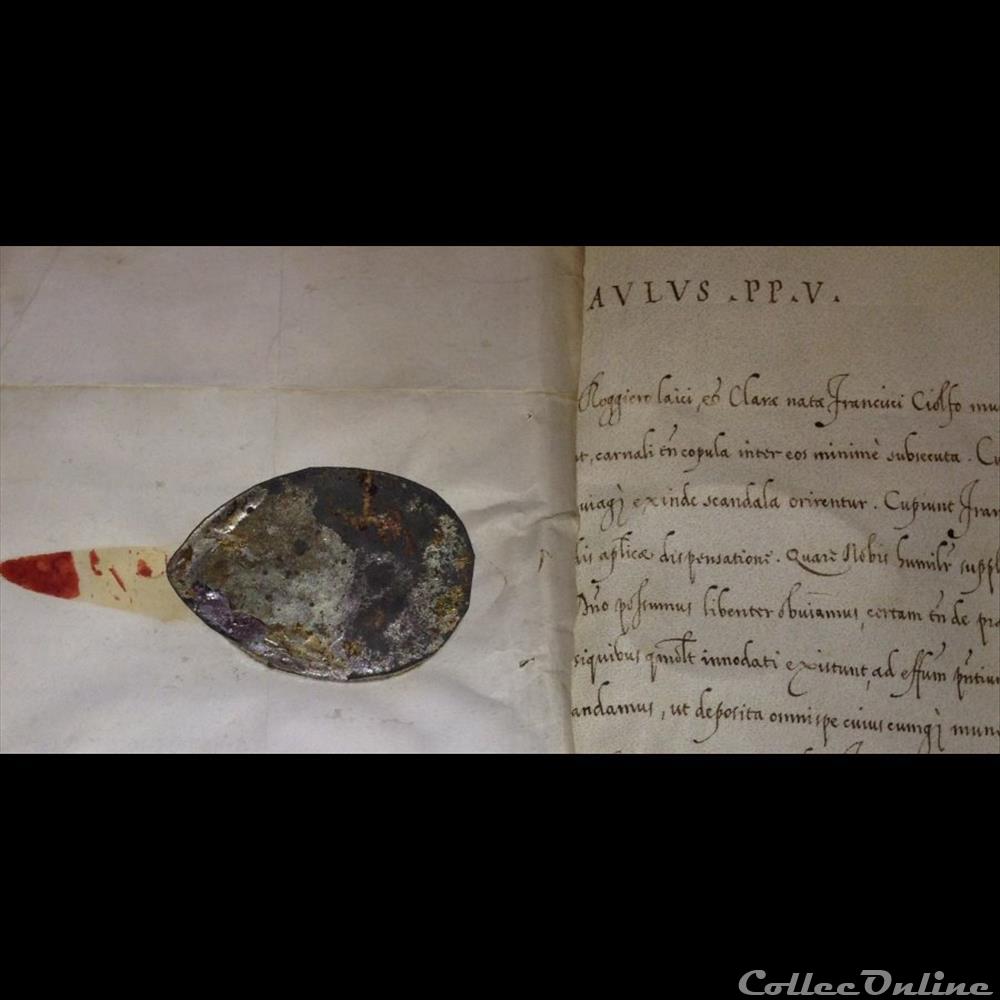 AVLVS .PP.V.
Roggiero laici, et Claræ natæ Francisci Ciolfo mu
ut, carnali tn copula inter eos minimè subsecuta. Cu
uiagj exinde scandala orirentur. Cupiunt Fran
lis aplicæ dispensatione. Quare Nobis humilr suppl
Dño possumus libenter obuiamus, certam tn de pra
siquibus qmolt innodati existunt, ad effum pntiu
andamus, ut deposita omni spe cuiuscumqj mune
ColleeOnline